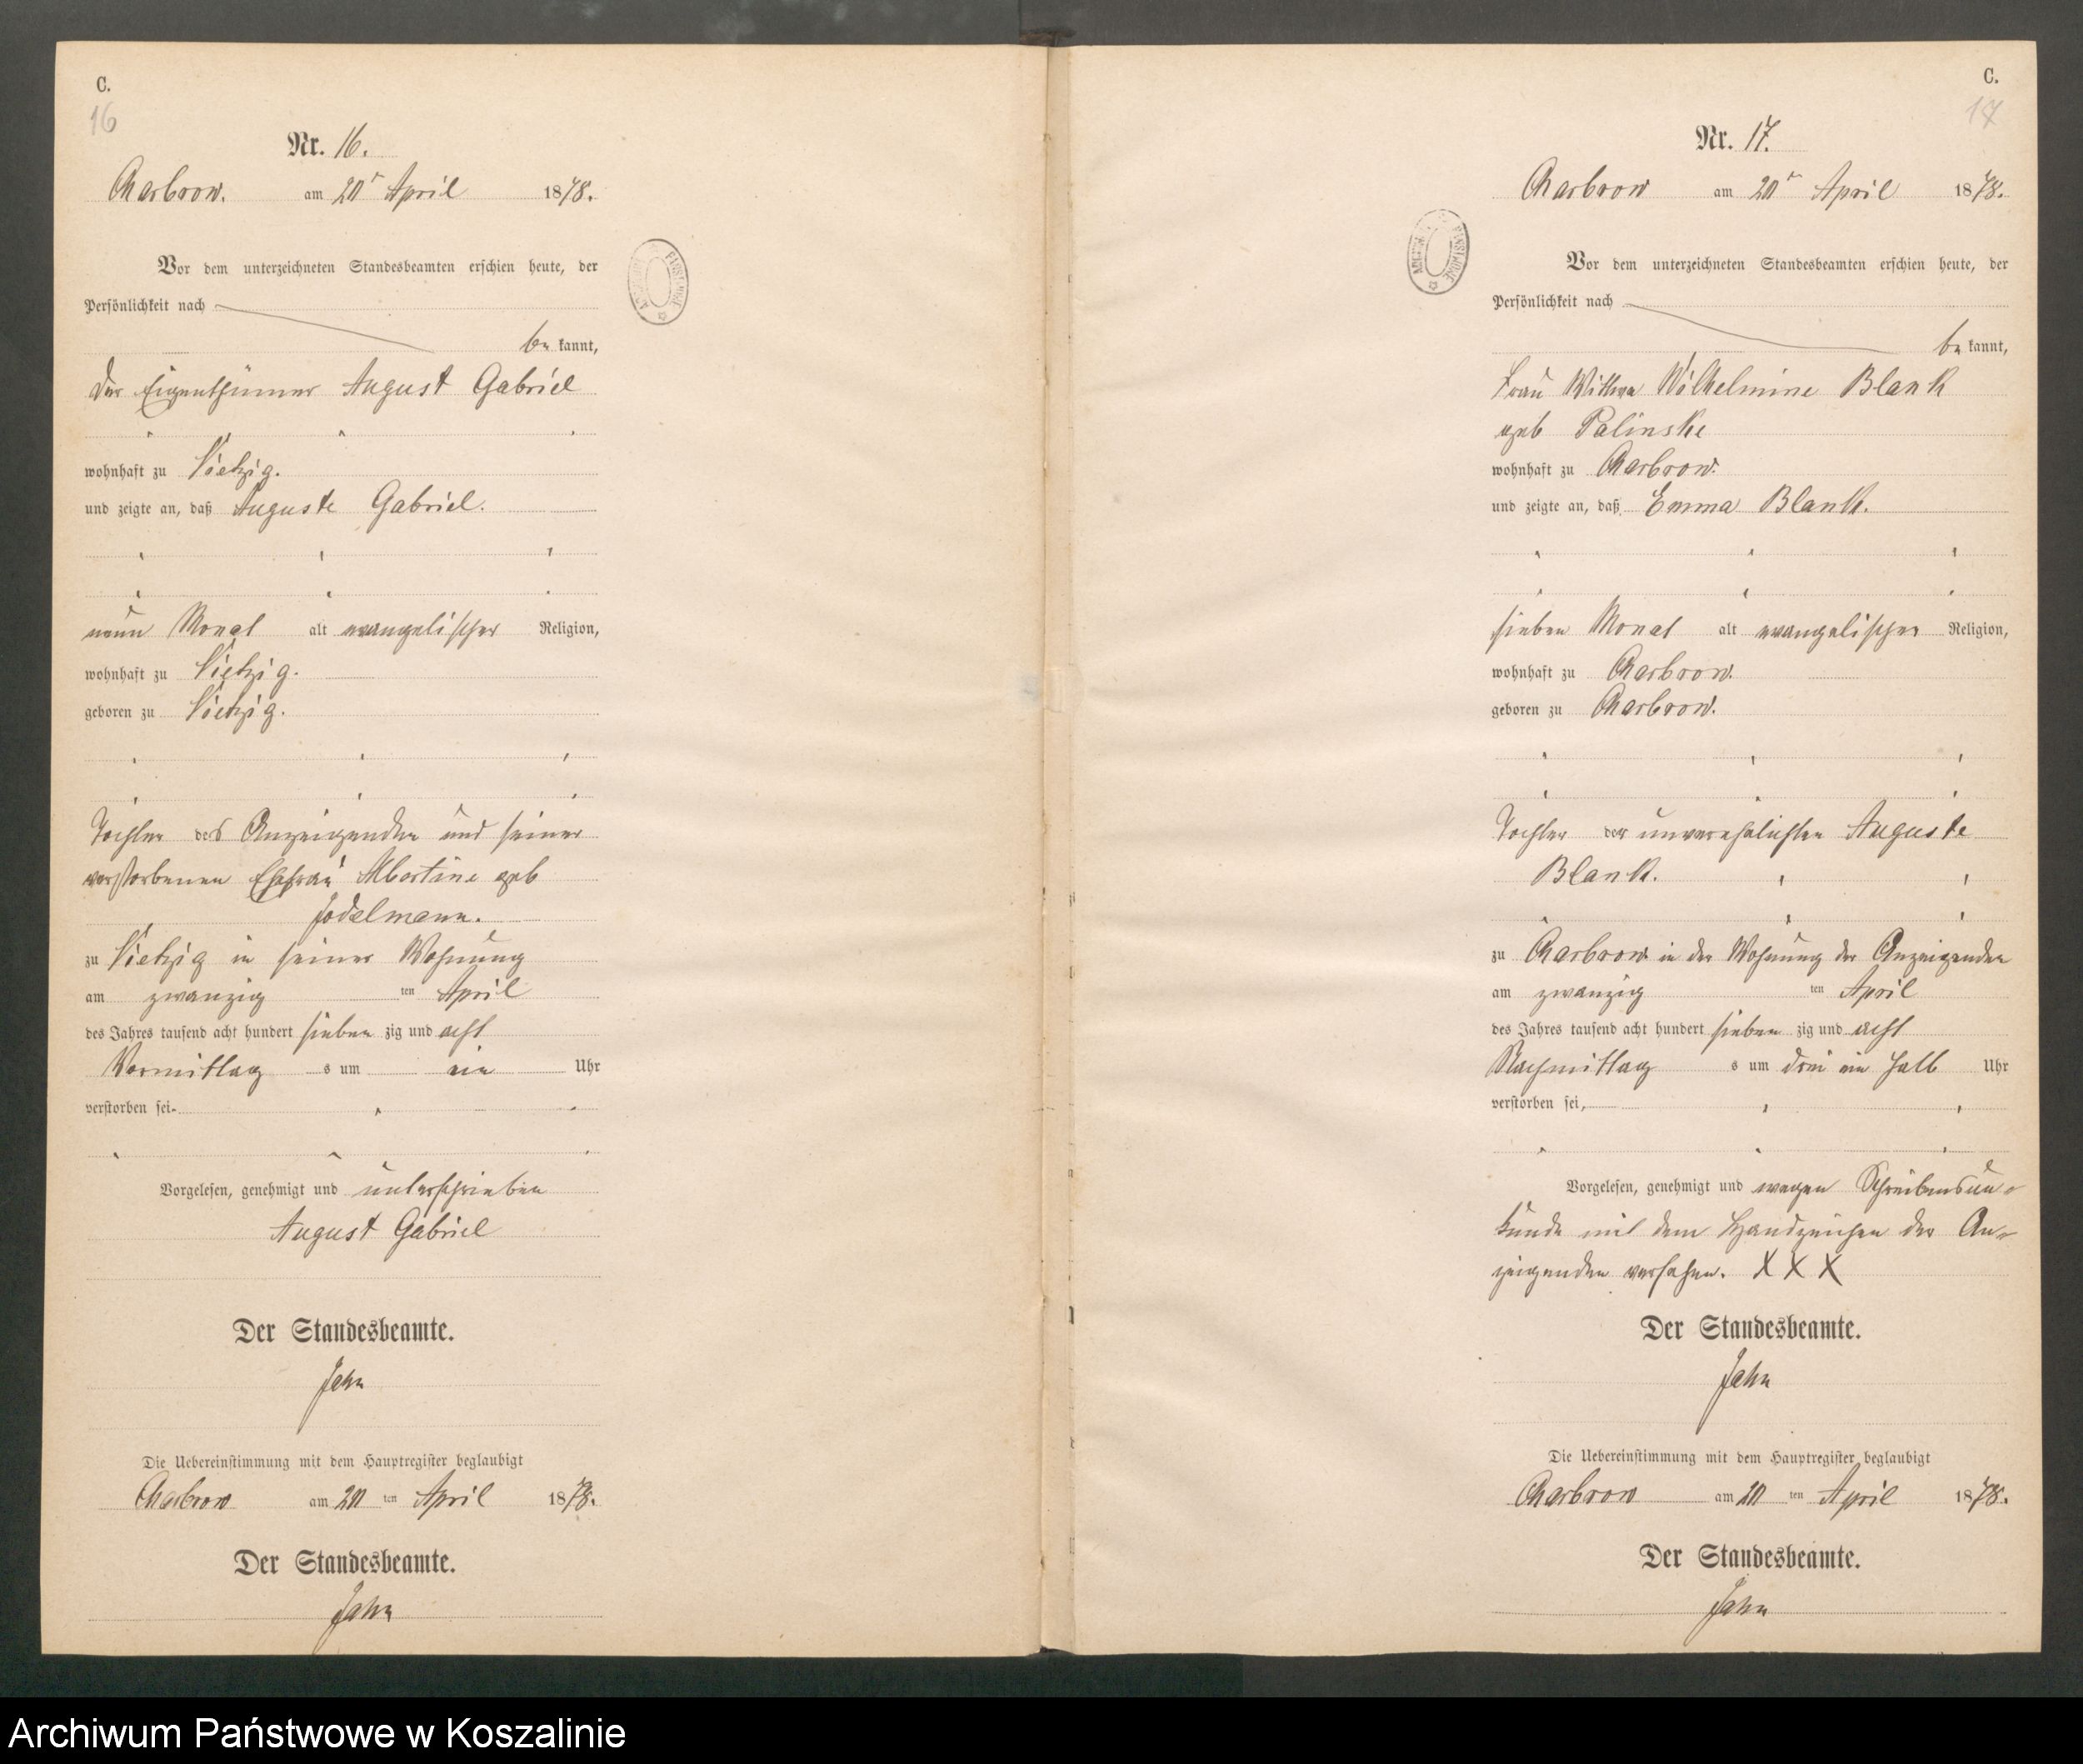 C.
16
Nr. 16.
Charbrow. am 20ᵗ April 1878.
Vor dem unterzeichneten Standesbeamten erschien heute, der
Persönlichkeit nach
be kannt,
der Eigenthümer August Gabriel
wohnhaft zu Vietzig.
und zeigte an, daß Auguste Gabriel.
neun Monat alt evangelischer Religion,
wohnhaft zu Vietzig.
geboren zu Vietzig.
Tochter des Anzeigenden und seiner
verstorbenen Ehefrau Albertine geb
Jodelmann.
zu Vietzig in seiner Wohnung
am zwanzig ten April
des Jahres tausend acht hundert sieben zig und acht
Vormittag s um ein Uhr
verstorben sei.
Vorgelesen, genehmigt und unterschrieben
August Gabriel
Der Standesbeamte.
Jahn
Die Uebereinstimmung mit dem Hauptregister beglaubigt
Charbrow am 20 ten April 1878.
Der Standesbeamte.
Jahn
C.
17
Nr. 17.
Charbrow am 20ᵗ April 1878.
Vor dem unterzeichneten Standesbeamten erschien heute, der
Persönlichkeit nach
be kannt,
Frau Wittwe Wilhelmine Blank
geb Palinske
wohnhaft zu Charbrow.
und zeigte an, daß Emma Blank.
sieben Monat alt evangelischer Religion,
wohnhaft zu Charbrow.
geboren zu Charbrow.
Tochter der unverehelichten Auguste
Blank.
zu Charbrow in der Wohnung der Anzeigenden
am zwanzig ten April
des Jahres tausend acht hundert sieben zig und acht
Nachmittag s um drei ein halb Uhr
verstorben sei,
Vorgelesen, genehmigt und wegen Schreibensun-
kunde mit dem Handzeichen der An-
zeigenden versehen. X X X
Der Standesbeamte.
Jahn
Die Uebereinstimmung mit dem Hauptregister beglaubigt
Charbrow am 20 ten April 1878.
Der Standesbeamte.
Jahn
Archiwum Państwowe w Koszalinie